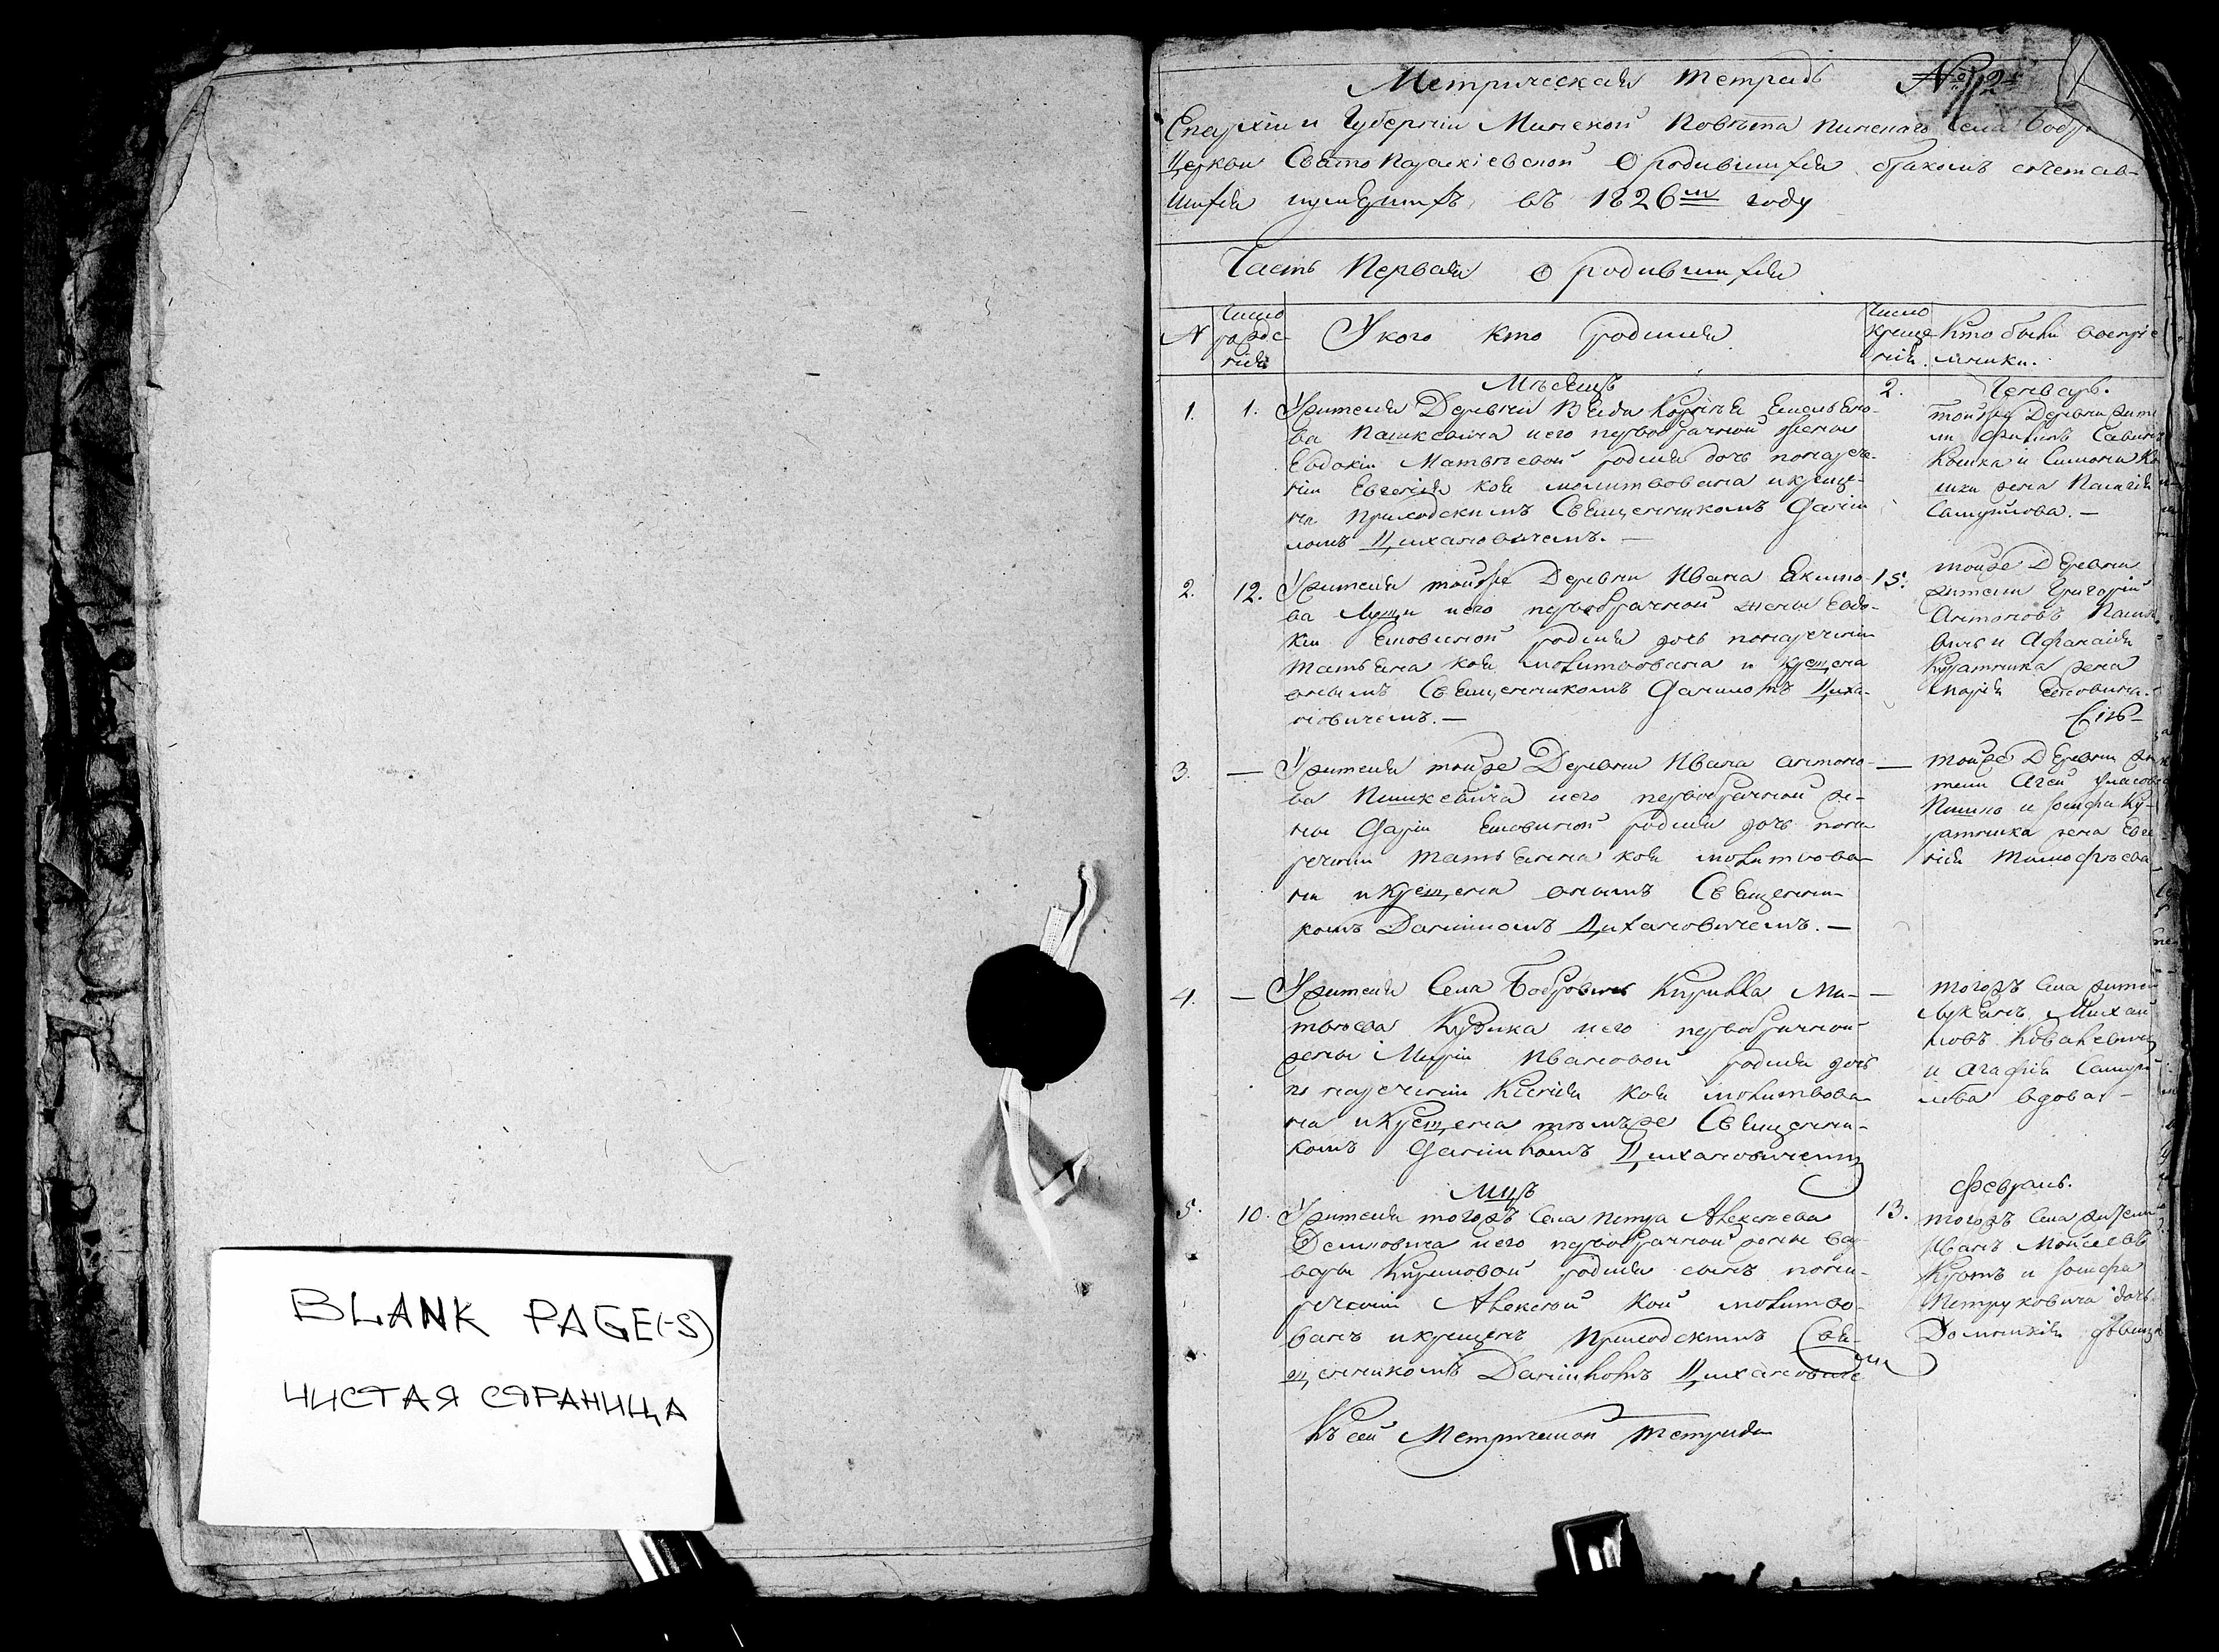 BLANK PAGE(-S)
ЧИСТАЯ СТРАНИЦА
Метрическая тетрадь № 2
Епархіи и Губерніи Минской Повѣта Пинскаго Села Бобр
Церкви Свято Параскіевской О родившихся бракомъ сочетав-
шихся и умершихъ въ 1826м году
Часть Первая О родившихся
N
Число рожде-
нія
У кого кто родился
Число
креще-
нія
Кто были воспріе
мники.
Мѣсяцъ
Генварь.
1.
1.
Жителя Деревни Вяла Корнѣя Емельяно-
ва Пашкевича и его первобрачной жены
Евдокіи Матвѣевой родися дочь понарече-
ніи Евгенія коя молитвована и креще-
на Приходскимъ Священникомъ Даніи
ломъ Цихановичемъ. —
2.
тойже Деревни жите
ли Филипъ Савинъ
Кошка и Симона Ко
шки жена Палагія
Самуйлова. —
2.
12.
Жителя тойже Деревни Ивана Якимо-
ва и его первобрачной жены Евдо-
кіи родися дочь понареченіи
Татьяна коя молитвована и крещена
онымъ Священникомъ Даниломъ Циха-
новичемъ. —
15.
тойже Деревни
жители Григорій
Антоновъ
и Афанасія
Куратника жена
Марія
3.
—
Жителя тойже Деревни Ивана Антоно-
ва Пашкевича и его первобрачной же-
ны Даріи родися дочь пона-
реченіи Татьянна коя молитвова-
на и крещена онымъ Священни-
комъ Даніиломъ Цихановичемъ. —
—
тойже Деревни жи
тели Агей
и Іосифа Ку-
ратника жена Евге
нія Тимофѣева
4.
—
Жителя Села Бобровичъ Кирилла Ма-
твѣева Кудика и его первобрачной
жены Маріи Ивановой родися дочь
по нареченіи Ксенія коя молитвова-
на и крещена тѣмъже Священни-
комъ Даніиломъ Цихановичемъ
—
тогожъ Села жители
Лукьянъ Михай
ловъ Ковалевичъ
и Агафія Самуй
лова вдова —
Мцъ
Февраль.
5.
10.
Жителя тогожъ Села Петра Алексѣева
Демковича и его первобрачной жены Вар-
вары Кириловой родися сынъ пона-
реченіи Алексѣй кой молитво-
ванъ и крещенъ Приходскимъ Свя-
щенникомъ Даніиломъ Цихановиче
мъ
13.
тогожъ Села жители
Иванъ Мойсеевъ
Кротъ и Іосифа
Петруковича дочь
Домникія дѣвица
Къ сей Метрической Тетради